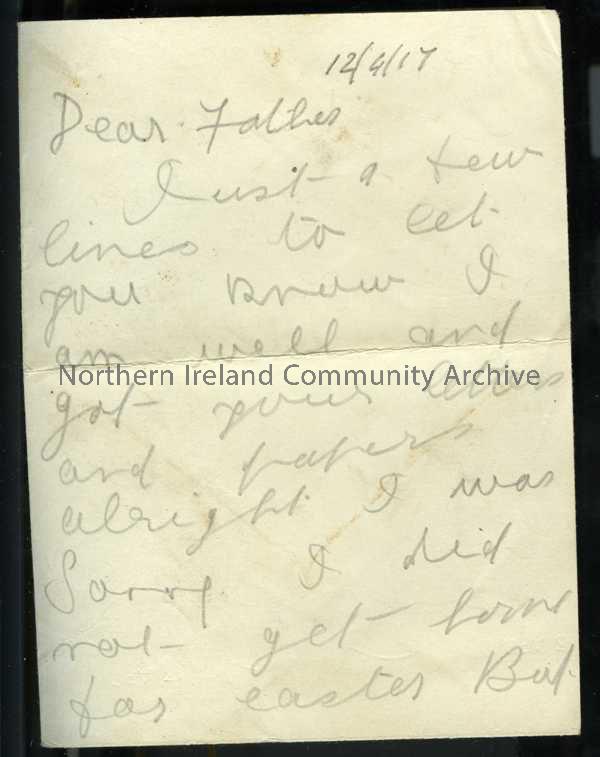 12/4/17
Dear Father
I just a few
lines to let
you know I
am well and
Northern Ireland Community Archive
got your letters
and papers
alright I was
Sorry I did
not get home
for easter But